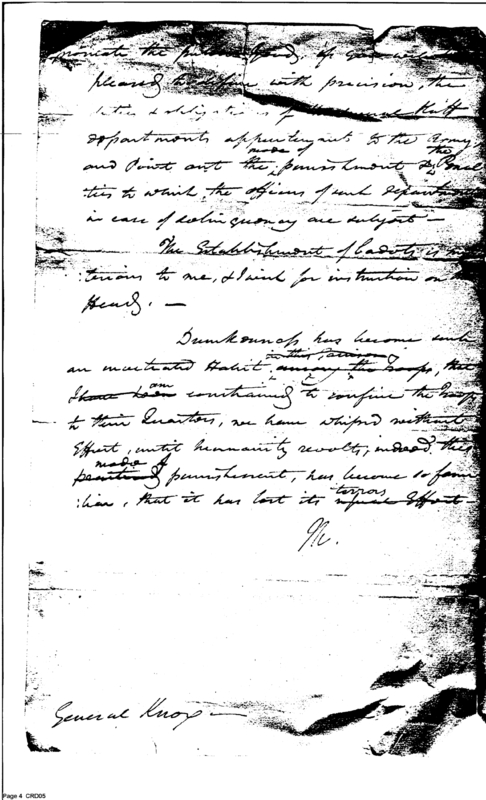 promote the public Good, if you will be
pleased to define with precision, the
duties & obligations of the several Staff
departments appurtenant to the Army
and Point out the mode of punishment & the Penal
ties to which, the officers of such departments
in case of delinquency are subject —
The Establishment of Cadets is mys
:terious to me, & I wish for instruction on
Head. —
Drunkenness has become such
an inveterate Habit, in this Garrison among the troops, that
I have been am constrained to confine the Troops
to their Quarters, we have whip'd without
Effect, until humanity revolts, indeed this
mode of practice of punishment, has become so fami
:liar, that it has lost its terrors usual Effect
General Knox —
Page 4 CRD05